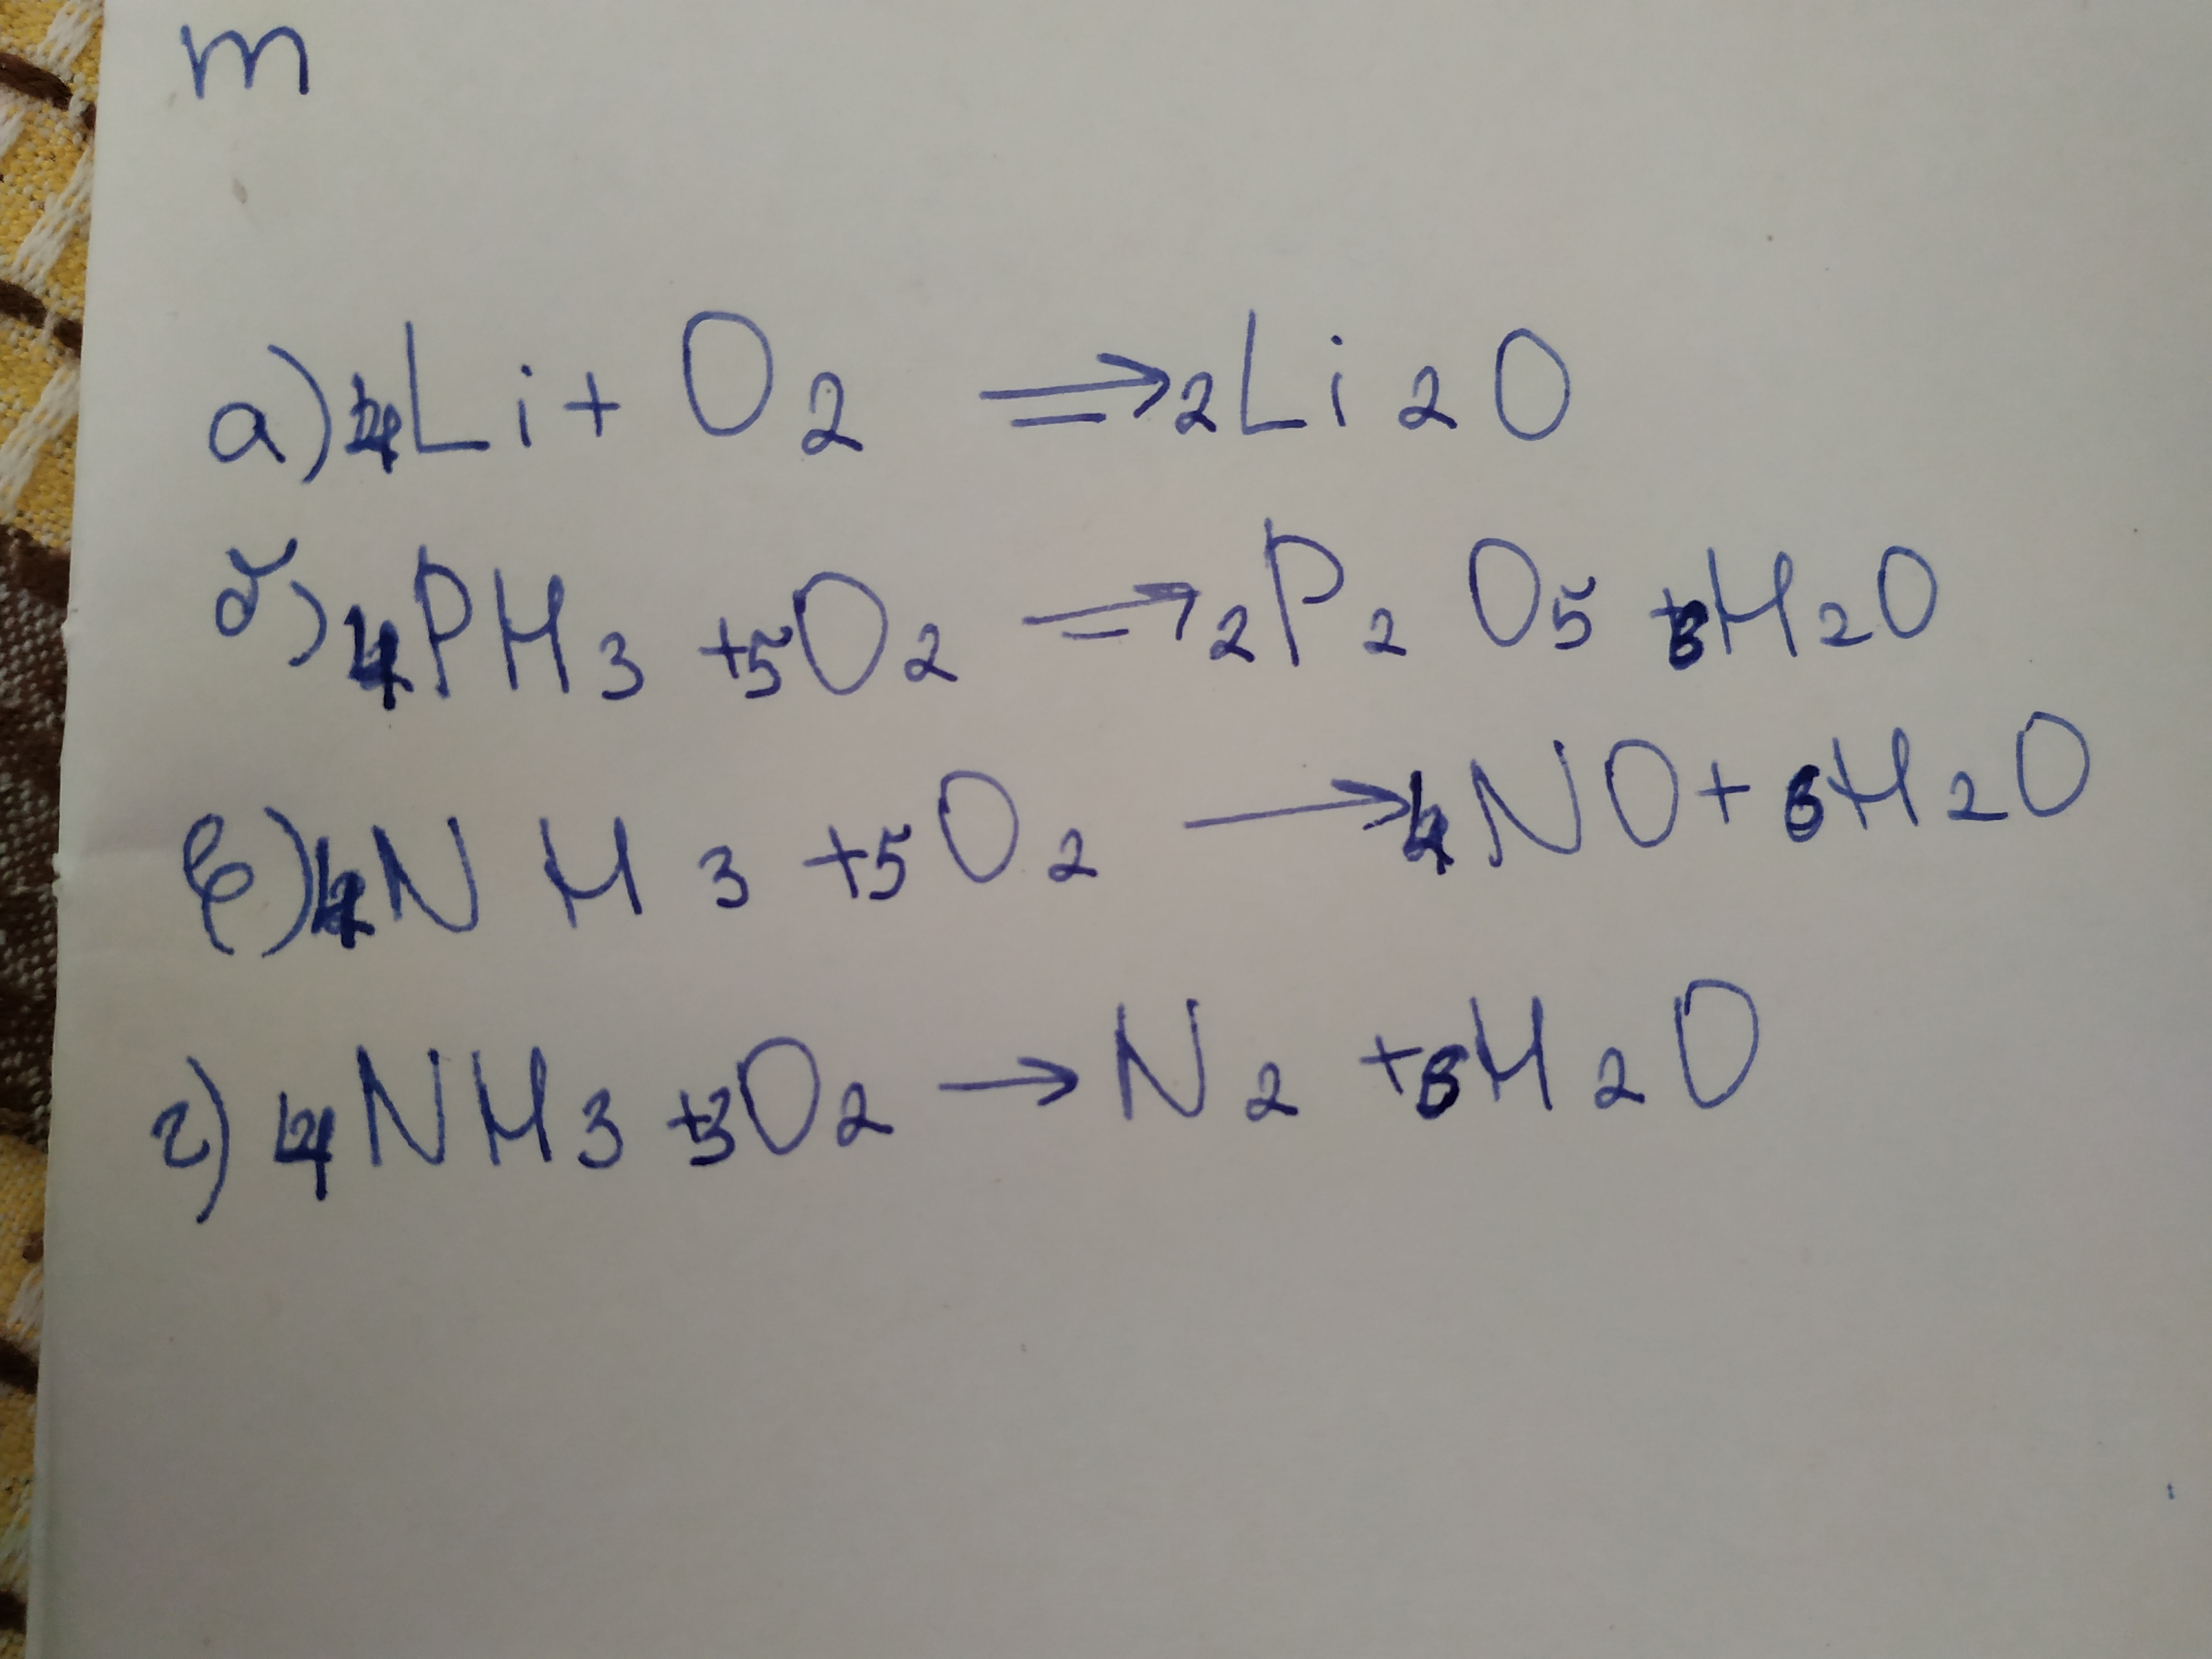 m
а) 4Li + O2 ⇒ 2Li2O
б) 4PH3 + 5O2 ⇒ 2P2O5 + 6H2O
в) 4NH3 + 5O2 → 4NO + 6H2O
г) 4NH3 + 3O2 → N2 + 6H2O